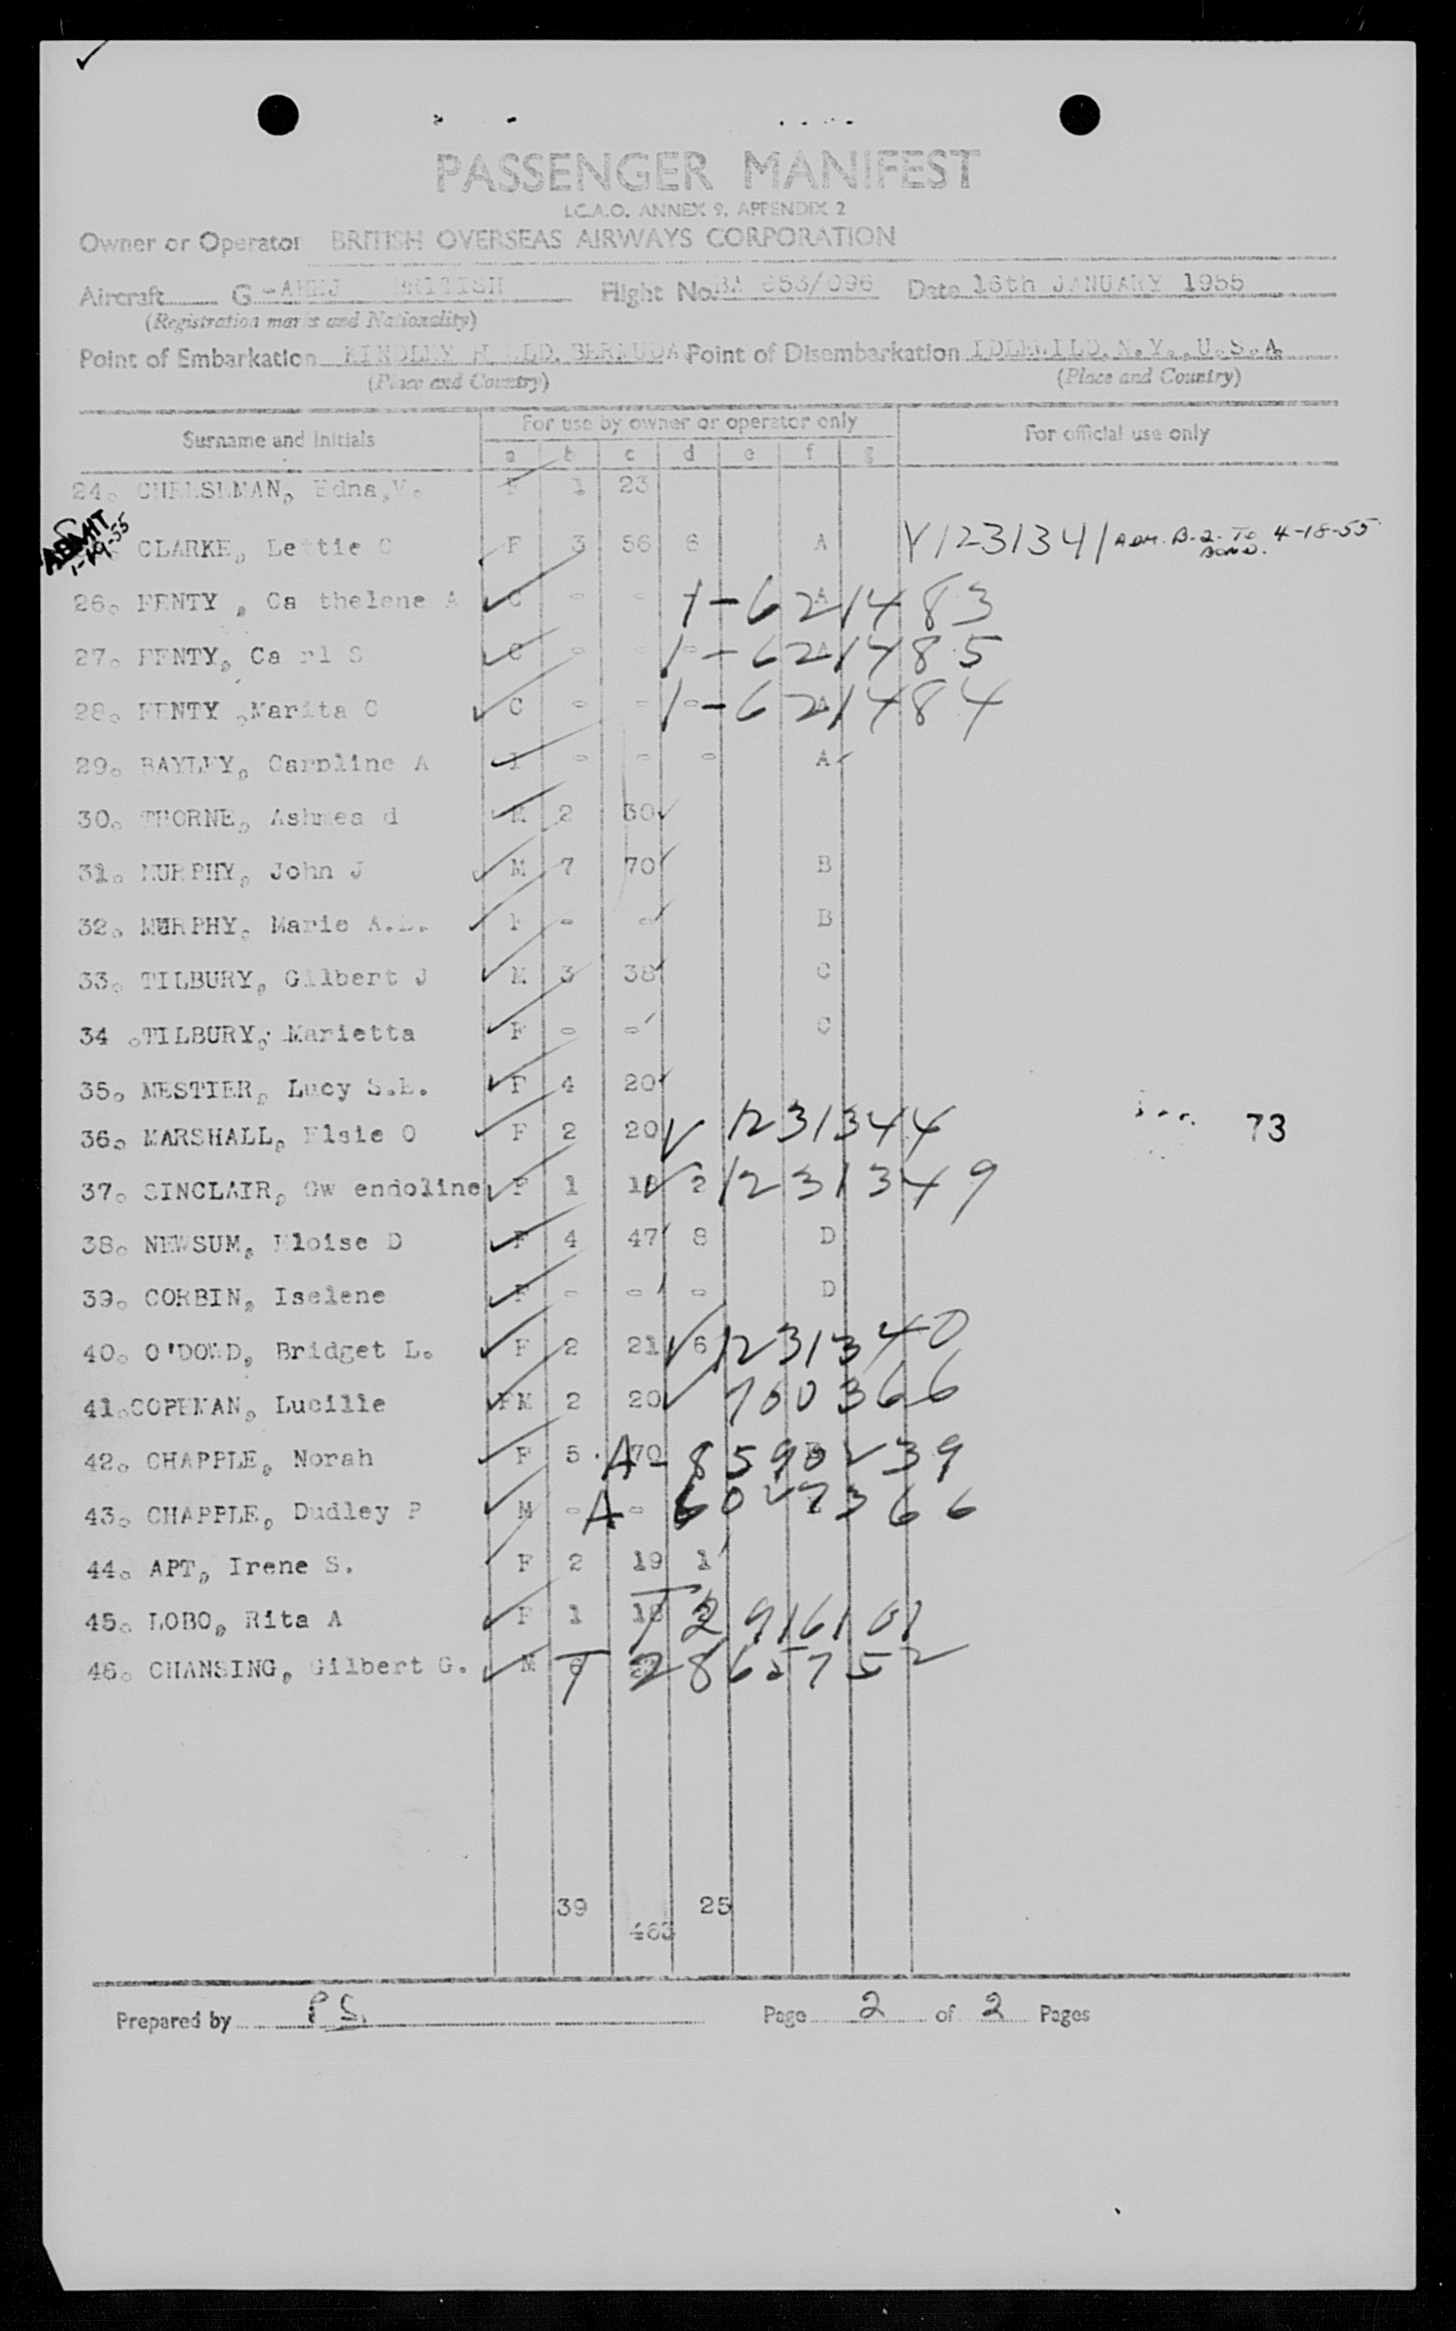 PASSENGER MANIFEST
I.C.A.O. ANNEX 9, APPENDIX 2
Owner or Operator BRITISH OVERSEAS AIRWAYS CORPORATION
Aircraft G - BRITISH Flight No. BA 653/096 Date 16th JANUARY 1955
(Registration marks and Nationality)
Point of Embarkation KINDLEY FIELD. BERMUDA Point of Disembarkation IDLEWILD. N.Y., U.S.A.
(Place and Country) (Place and Country)
Surname and Initials For use by owner or operator only For official use only
a b c d e f g
24. CHEESEMAN, Edna,V. F 1 23
ADMIT 1-19-55 CLARKE, Lettie C F 3 56 6 A V1231341 ADM. B-2- TO 4-18-55 BOND.
26. FENTY , Ca thelene A C - - A 1-621483
27. FENTY, Ca rl S C - - - A 1-621485
28. FENTY ,Marita C C - - - A 1-621484
29. BAYLEY, Carpline A I - - - A
30. THORNE, Ashmea d M 2 30
31. MURPHY, John J M 7 70 B
32. MURPHY, Marie A. F - - B
33. TILBURY, Gilbert J M 3 38 C
34 .TILBURY, Marietta F - - C
35. MESTIER, Lucy S.E. F 4 20
36. MARSHALL, Elsie O F 2 20 V 1231344 73
37. SINCLAIR, Gw endoline F 1 18 2 V 1231349
38. NEWSUM, Eloise D F 4 47 8 D
39. CORBIN, Iselene F - - - D
40. O'DOWD, Bridget L. F 2 21 6 V 1231340
41.COPEMAN, Lucille FM 2 20 V 700366
42. CHAPPLE, Norah F 5 70 A-8590239
43. CHAPPLE, Dudley P M - - A 6027366
44. APT, Irene S. F 2 19 1
45. LOBO, Rita A F 1 18 T 2916101
46. CHANSING, Gilbert G. M 6 T 2865752
39 25
463
Prepared by P S. Page 2 of 2 Pages